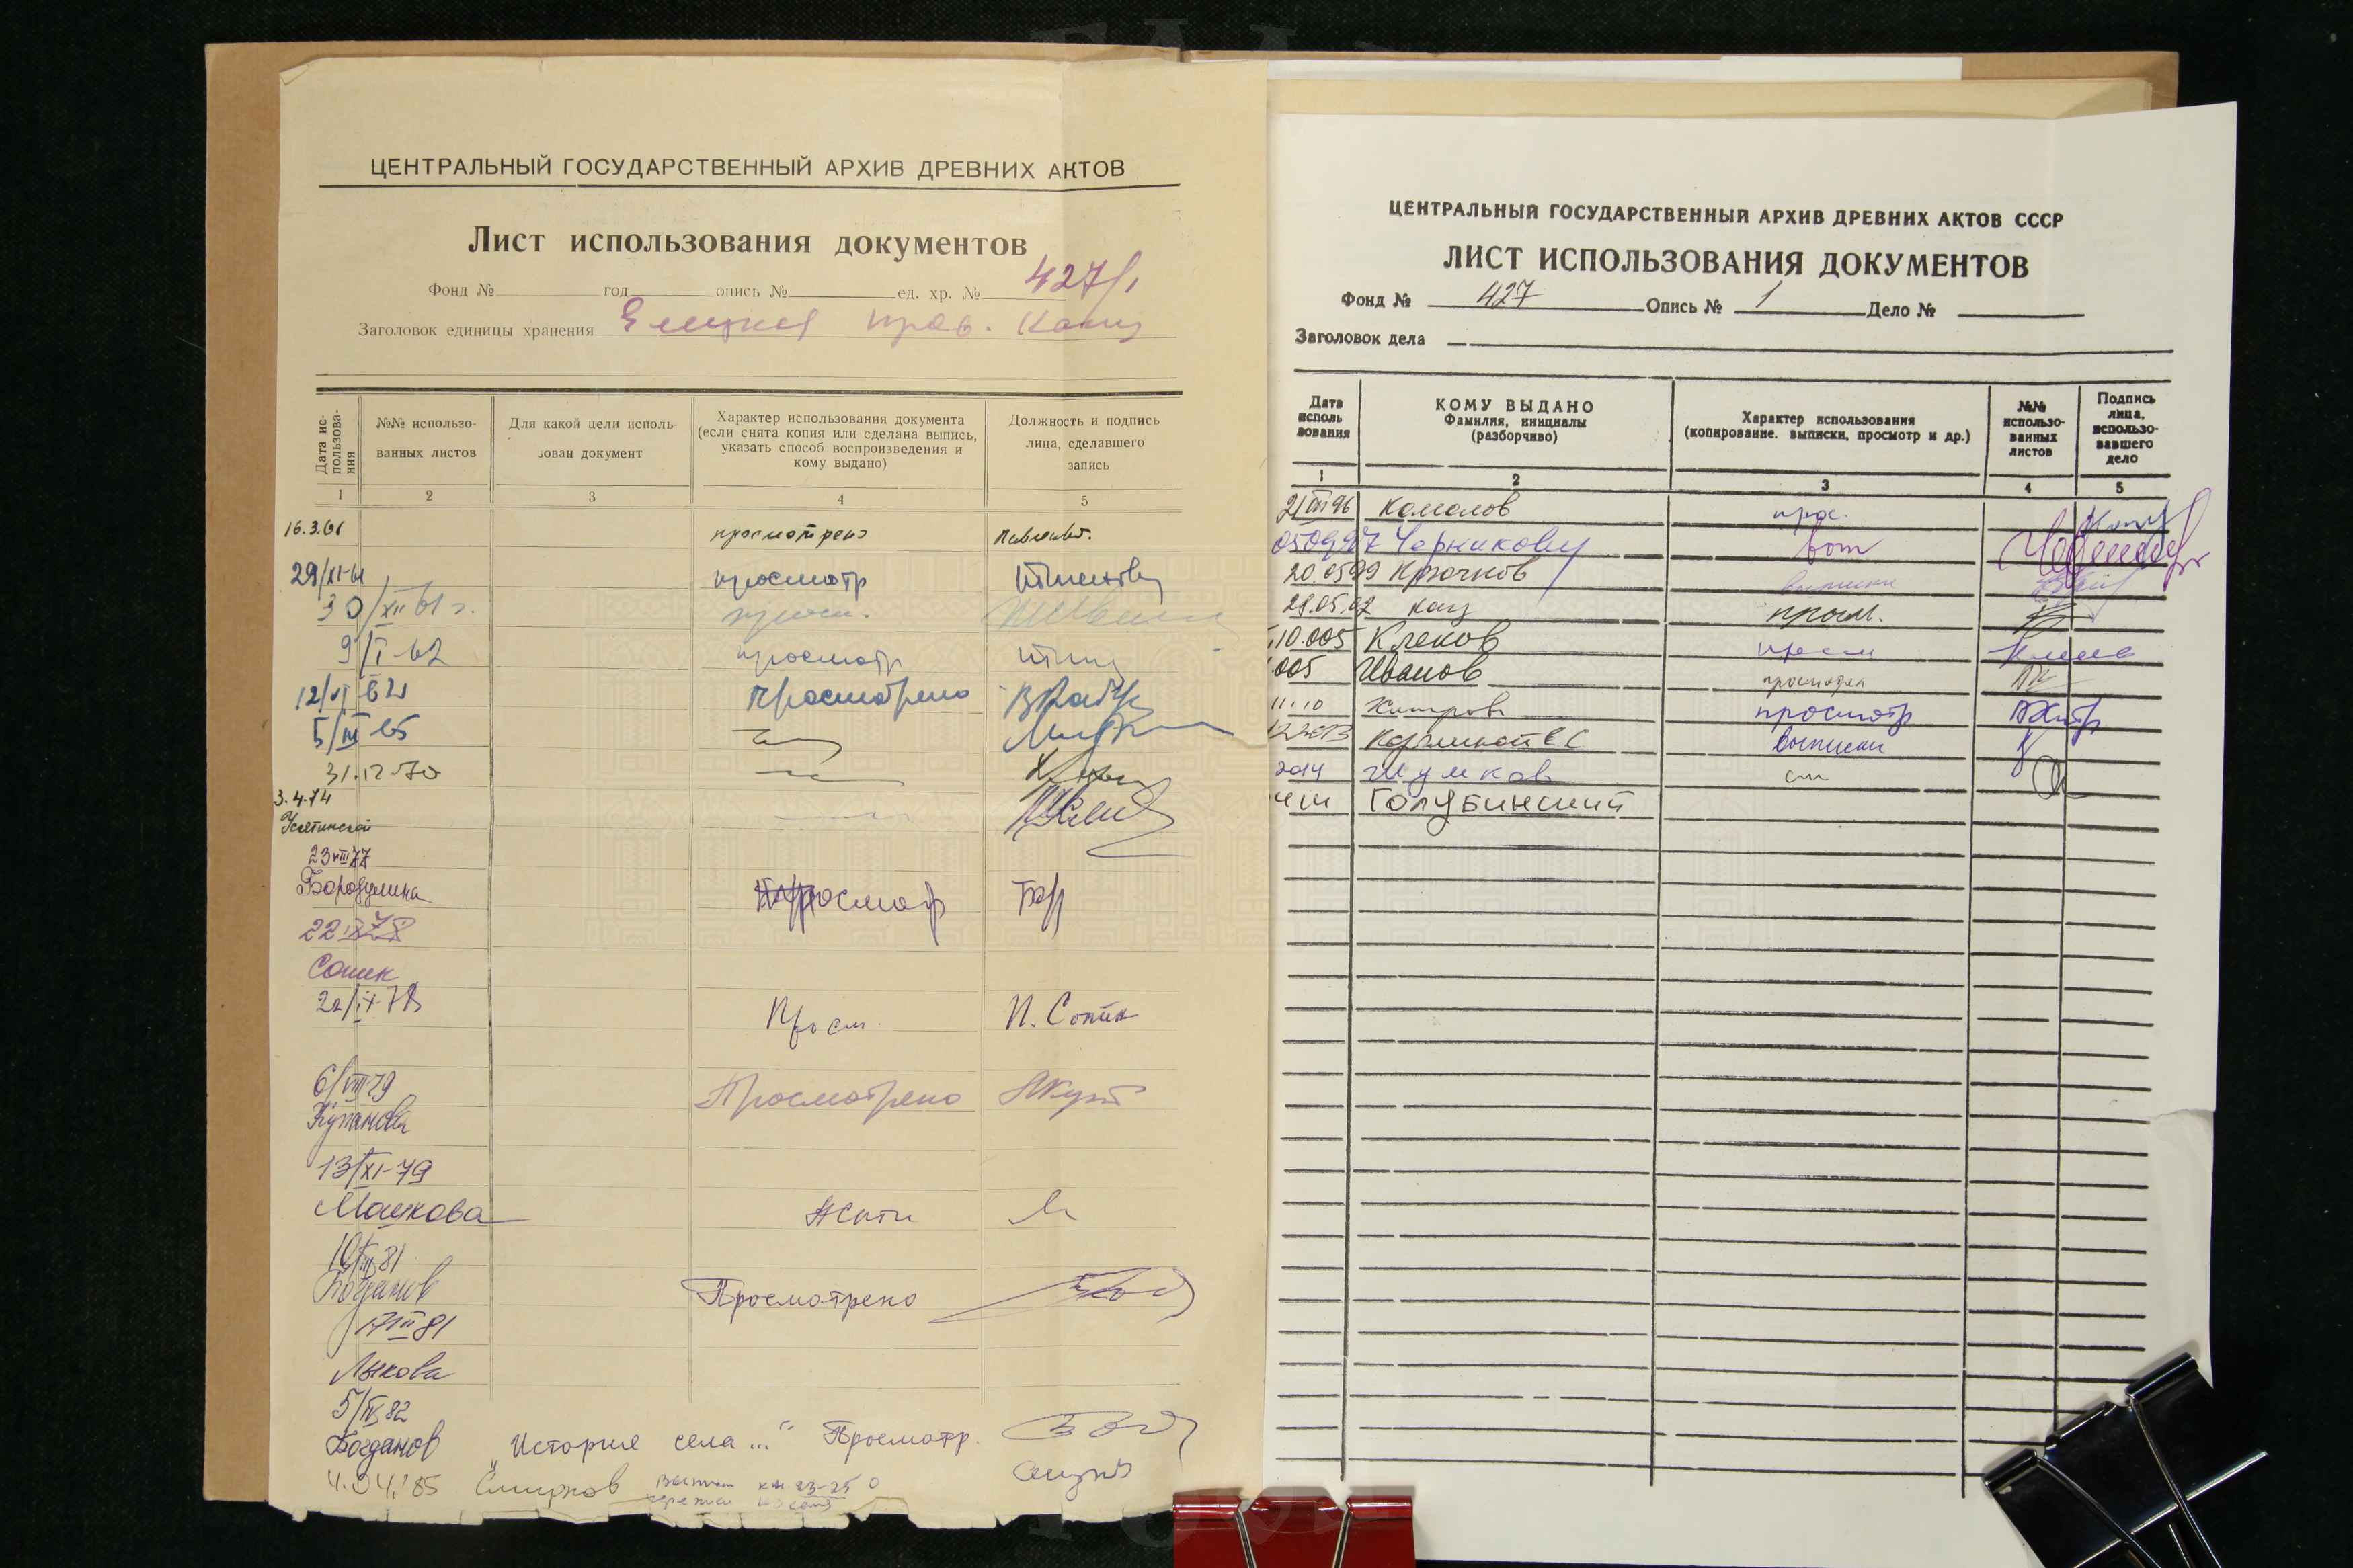 ЦЕНТРАЛЬНЫЙ ГОСУДАРСТВЕННЫЙ АРХИВ ДРЕВНИХ АКТОВ
Лист использования документов
Фонд № год опись № ед. хр. № 427/1
Заголовок единицы хранения Елецкая пров. Канц
Дата использования
№№ использованных листов
Для какой цели использован документ
Характер использования документа
(если снята копия или сделана выпись,
указать способ воспроизведения и
кому выдано)
Должность и подпись
лица, сделавшего
запись
1 2 3 4 5
16.3.61 просмотрено
29/XI-61 просмотр
30/XII 61 г. просм.
9/I-62 просмотр
12/VI 62 Просмотрено
5/III 65
31.IV-70
3.4.74
23 VIII 77
Бородулина просмотр Бор
22 IX 78
Сопик
22/IX-78 Просм. П. Сопик
6/VIII 79 Просмотрено
13/XI-79
Машкова
10/III 81
Богданов Просмотрено
17 III 81
Лыкова
5/IV 82
Богданов „История села..." Просмотр.
4.04.85 Смирнов
ЦЕНТРАЛЬНЫЙ ГОСУДАРСТВЕННЫЙ АРХИВ ДРЕВНИХ АКТОВ СССР
ЛИСТ ИСПОЛЬЗОВАНИЯ ДОКУМЕНТОВ
Фонд № 427 Опись № 1 Дело №
Заголовок дела
Дата
исполь
зования
КОМУ ВЫДАНО
Фамилия, инициалы
(разборчиво)
Характер использования
(копирование. выписки, просмотр и др.)
№№
использо-
ванных
листов
Подпись
лица,
использо-
вавшего
дело
1 2 3 4 5
21 VII 96 Комолов прос.
050997 Черникову
20.0599 Крючков выписки
28.05.02 Кац просм.
10.005 Клеков просм
005 Иванов просмотр
11.10 Хитров просмотр
122013 выписки
2014 Шумков см
Голубинский